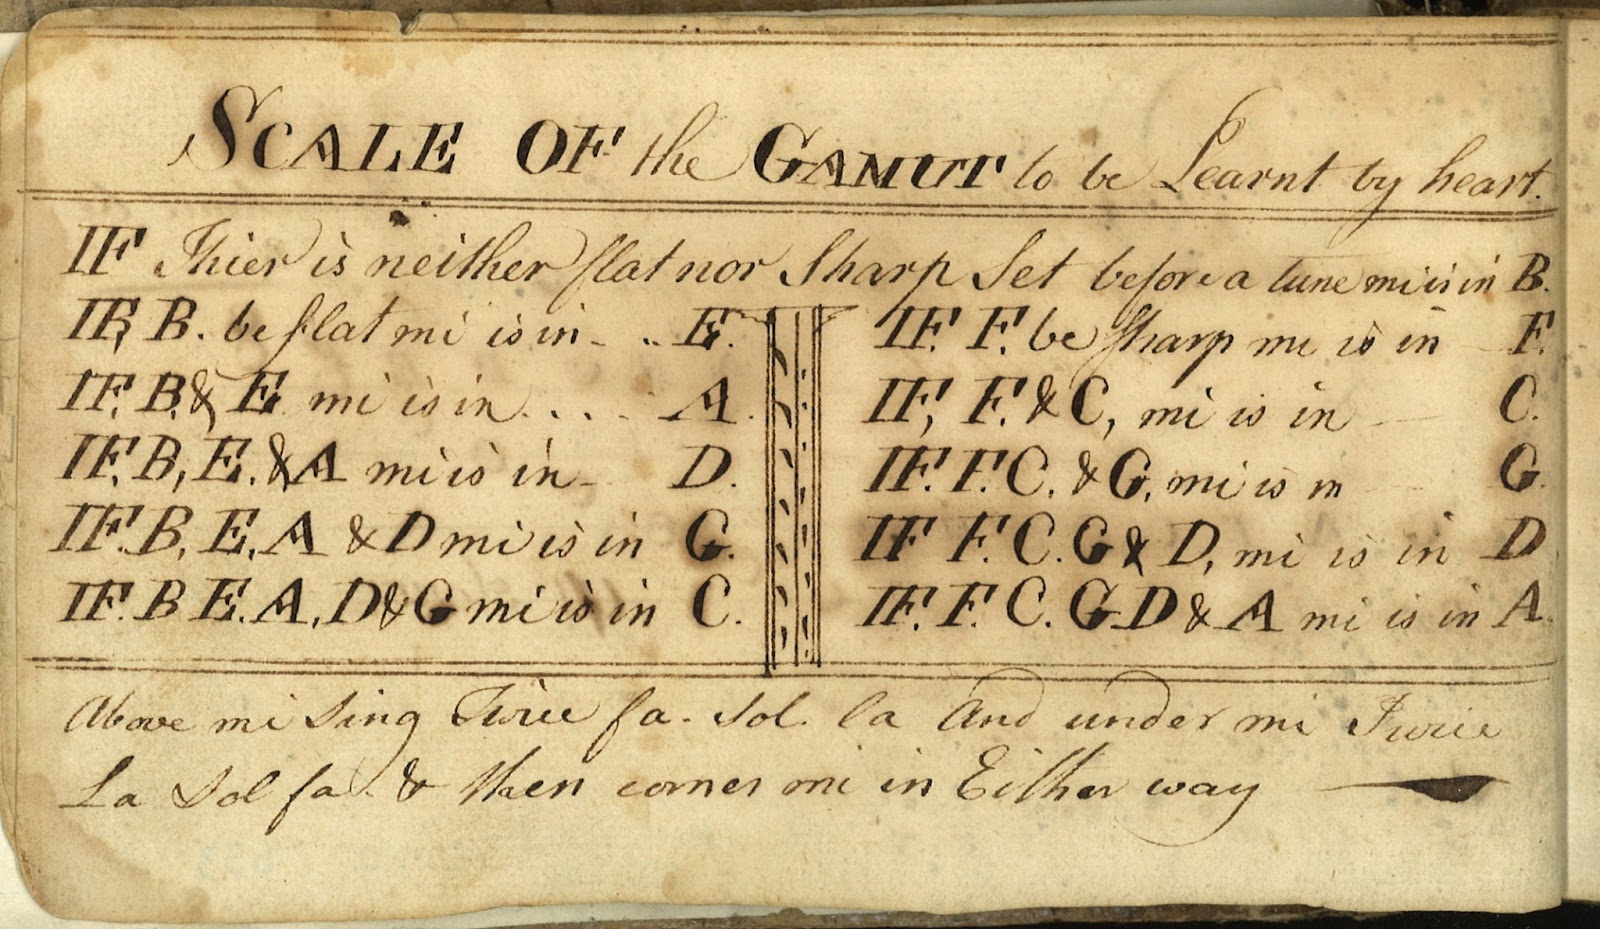 SCALE OF the GAMUT to be Learnt by heart.
IF Thier is neither flat nor Sharp Set before a tune mi is in B.
IF, B. be flat mi is in - .. E.
IF, B. & E mi is in . . . . A.
IF. B, E. & A mi is in - D.
IF. B, E, A & D mi is in G.
IF. B E. A, D & G mi is in C.
IF. F. be Sharp mi is in F.
IF, F. & C, mi is in - C.
IF. F. C. & G, mi is in G.
IF F. C. G & D, mi is in D
IF. F. C. G D & A mi is in A.
Above mi Sing Twice fa. Sol. la And under mi Twice
La Sol fa. & then comes mi in Either way